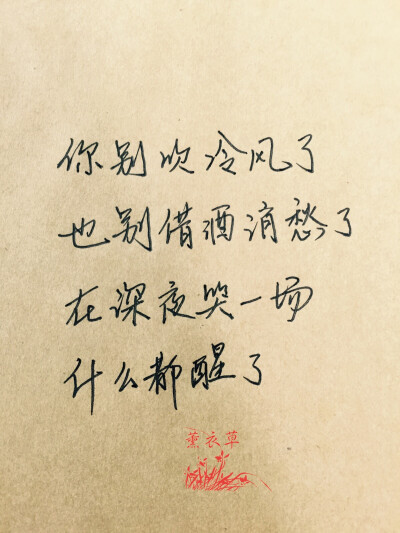 你别吹冷风了
也别借酒消愁了
在深夜哭一场
什么都醒了
薰衣草